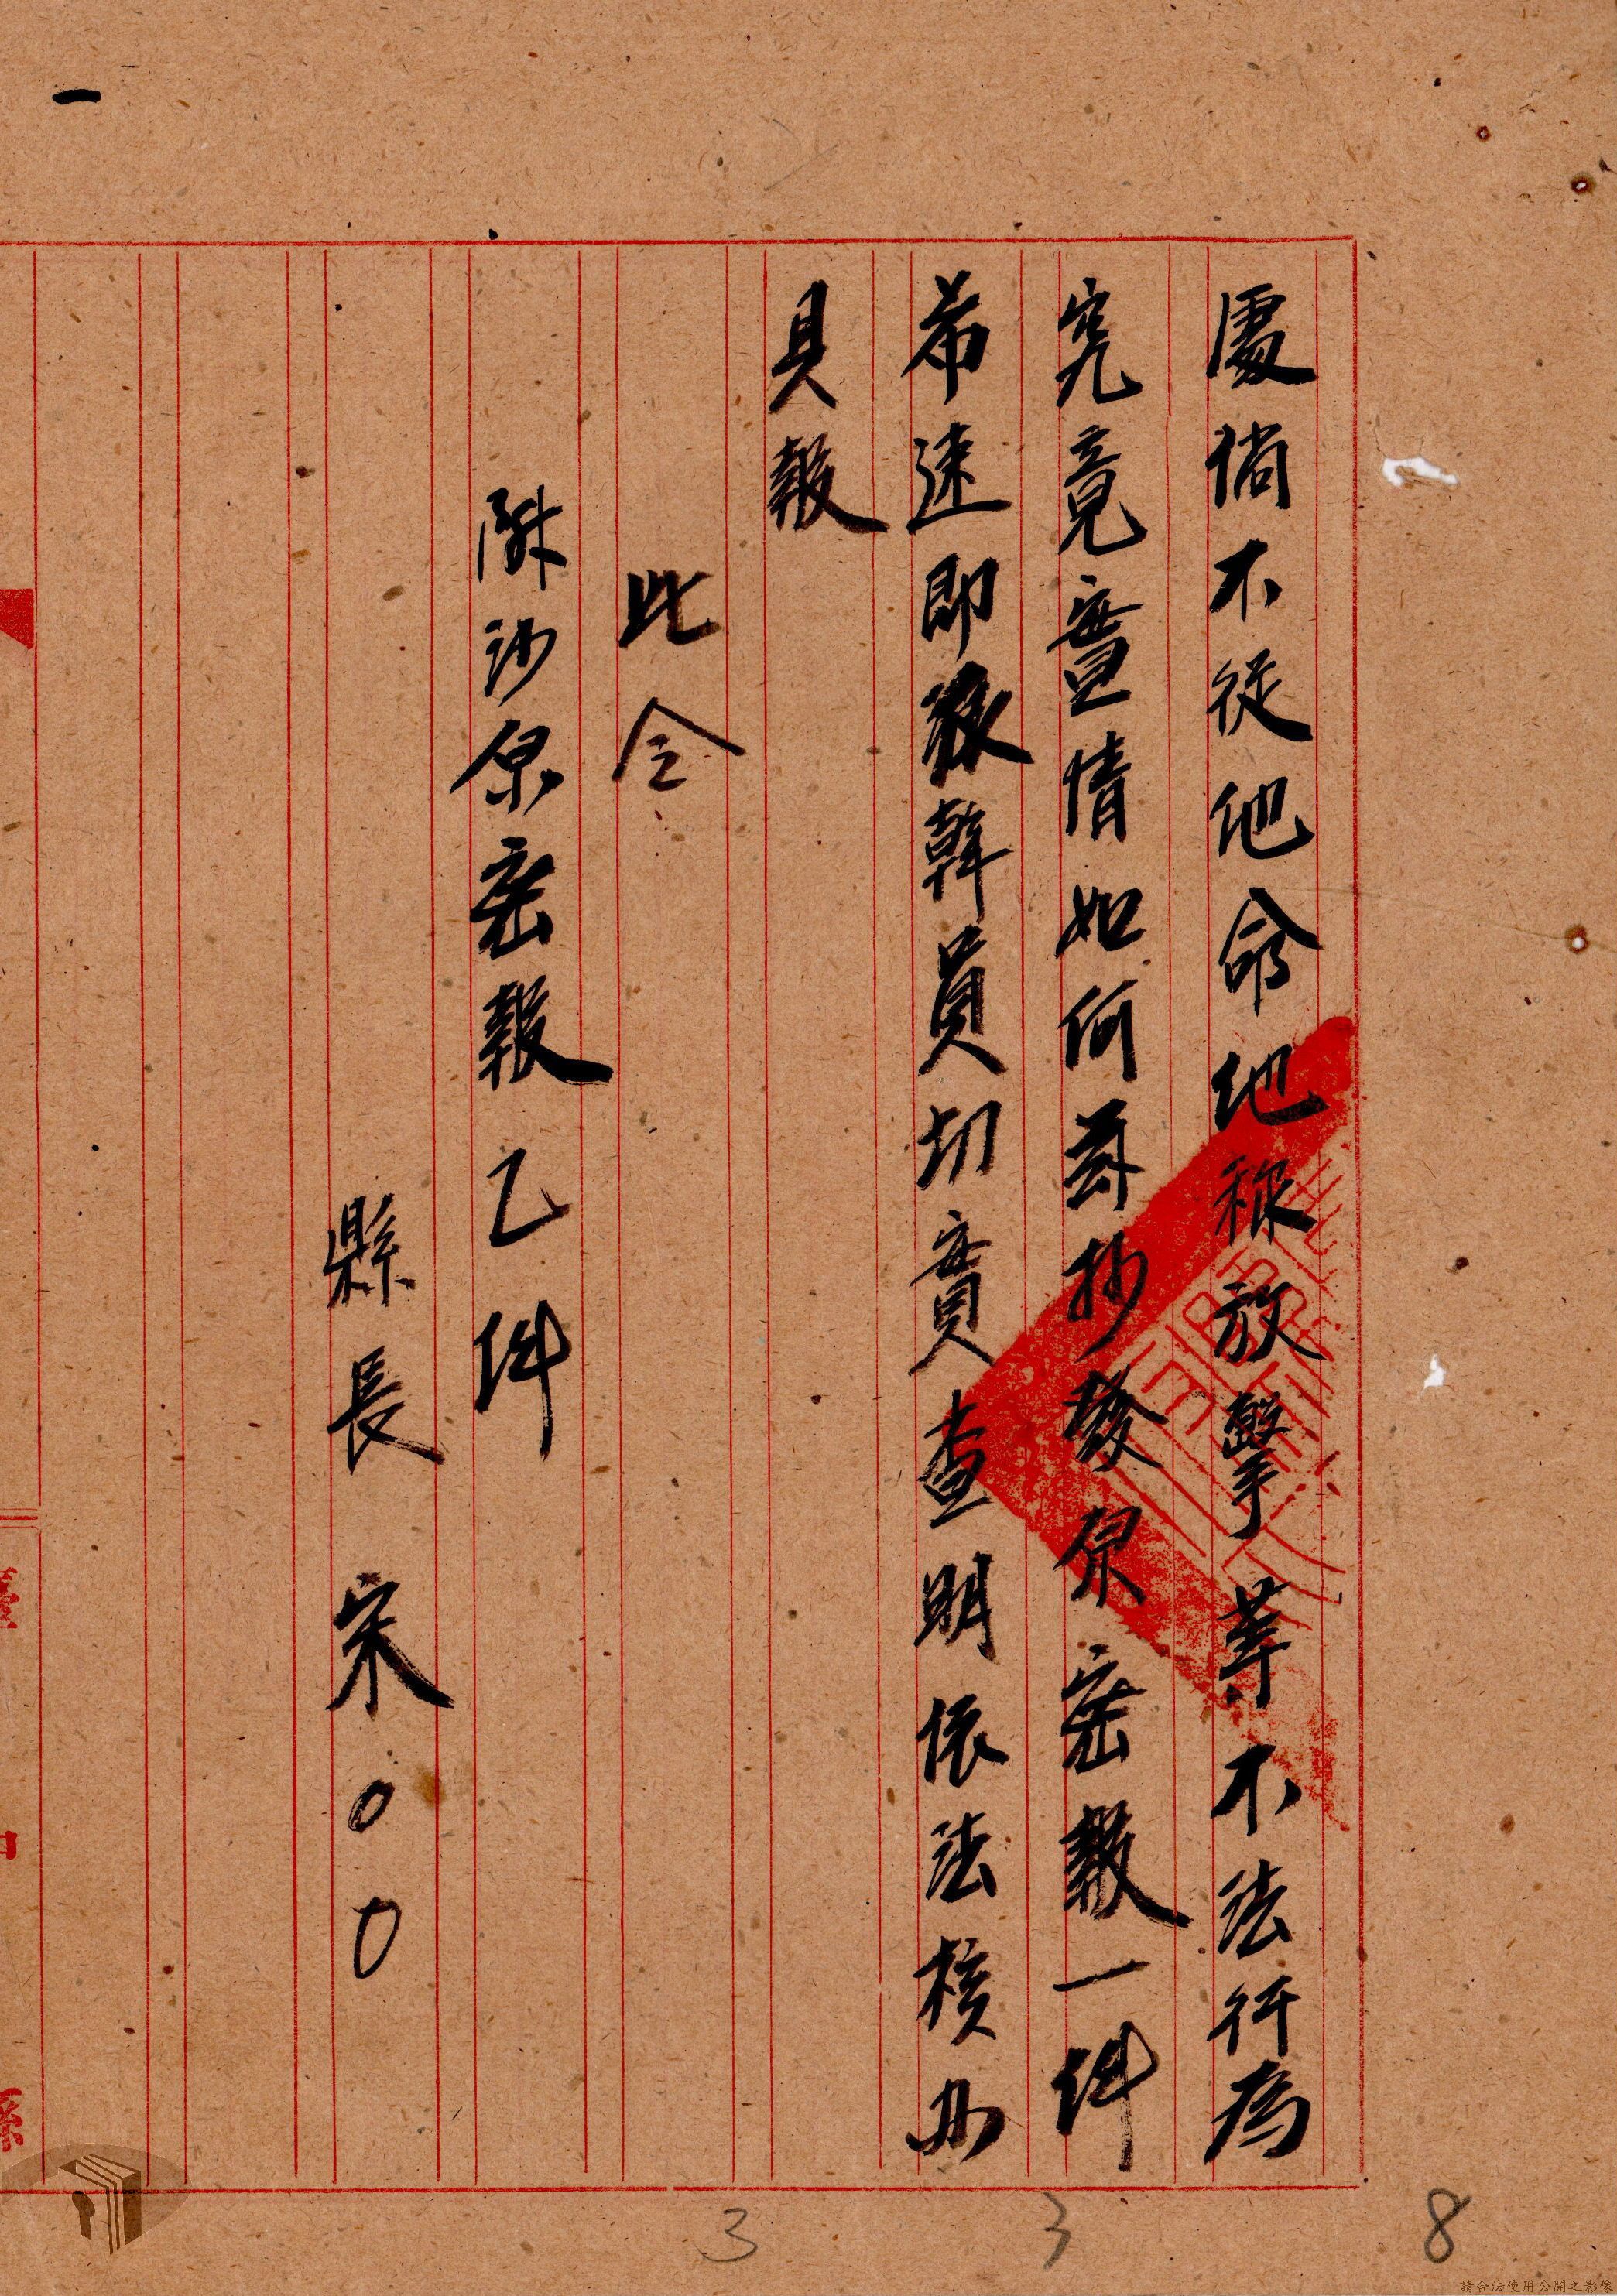 處倘不從他命他稱放擊等不法行為
究竟實情如何茲抄發原密報一件
希速即派幹員切實查明依法核办
具報
此令
附抄原密報乙件
縣長宋〇〇
一
臺
中
縣
3
3
8
請合法使用公開之影像